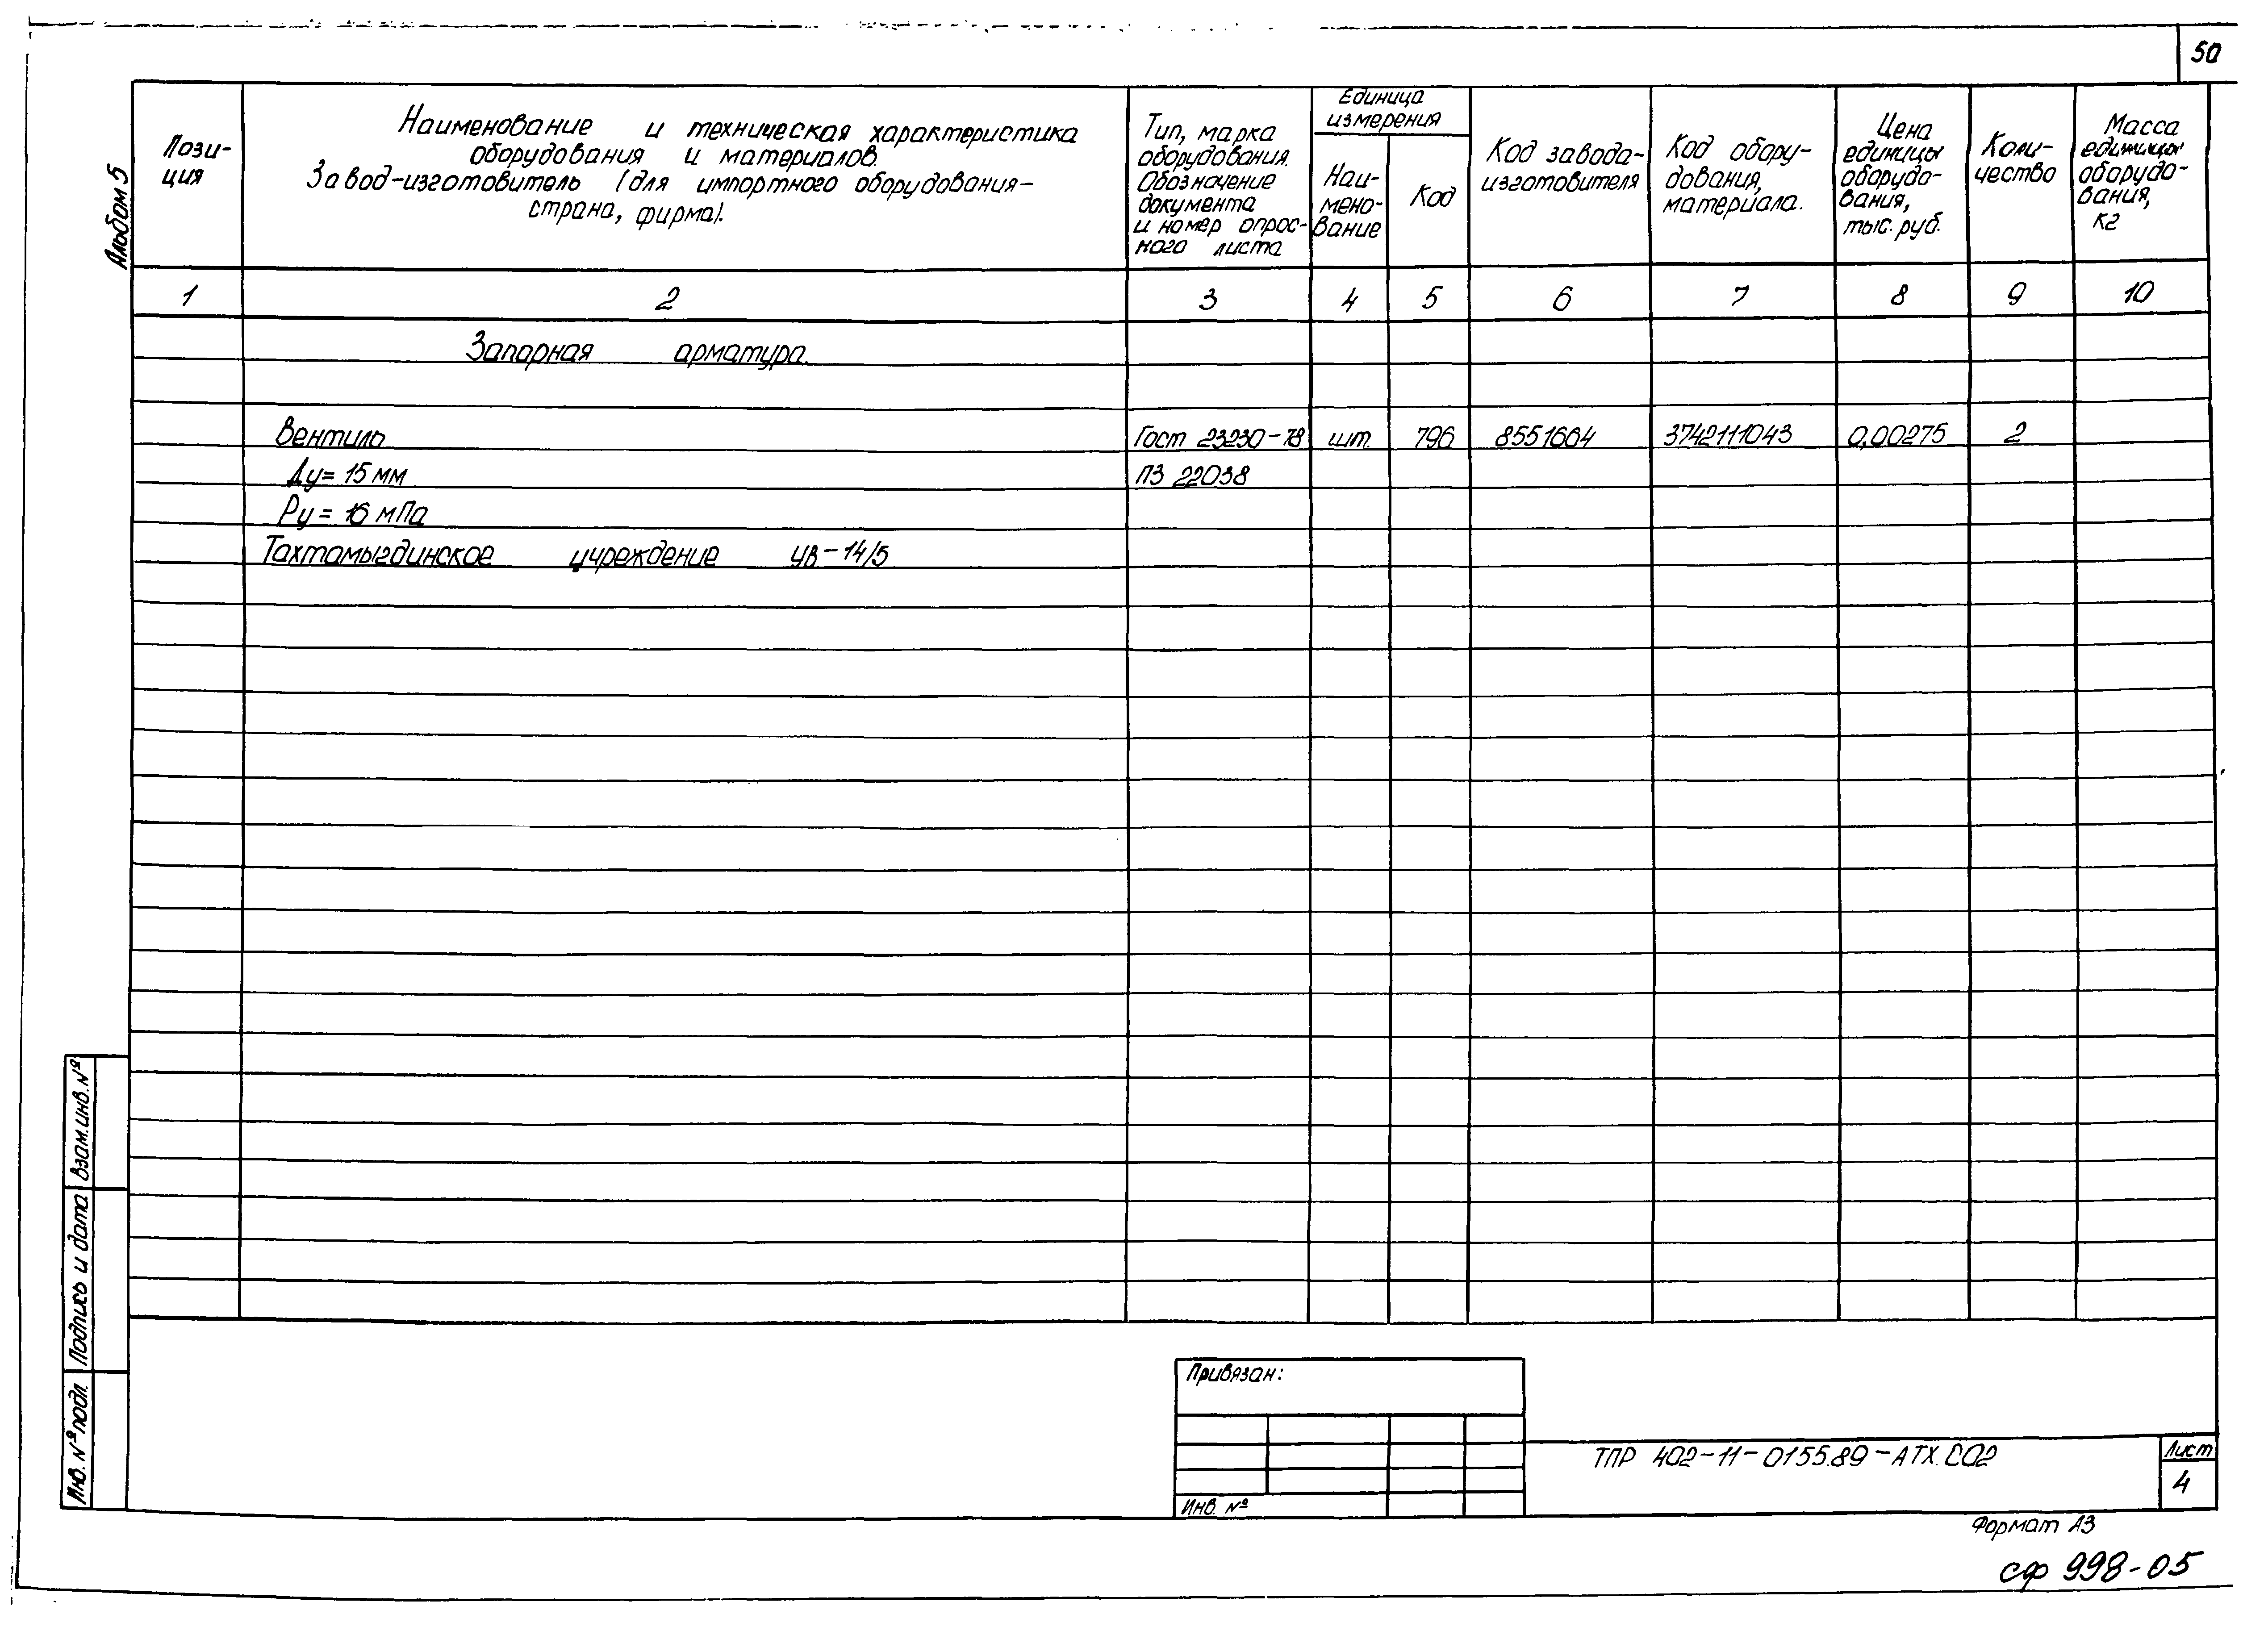 50
Альбом 5
Пози-
ция
Наименование и техническая характеристика
оборудования и материалов.
Завод-изготовитель (для импортного оборудования-
страна, фирма).
Тип, марка
оборудования.
Обозначение
документа
и номер опрос-
ного листа
Единица
измерения
Наи-
мено-
вание
Код
Код завода-
изготовителя
Код обору-
дования,
материала.
Цена
единицы
оборудо-
вания,
тыс. руб.
Коли-
чество
Масса
единицы
оборудо-
вания,
кг
1 2 3 4 5 6 7 8 9 10
Запорная арматура.
Вентиль Гост 23230-78 шт. 796 8551664 3742111043 0,00275 2
Ду= 15 мм ПЗ 22038
Ру = 16 мПа
Тахтамыгдинское учреждение УВ-14/5
Взам.инв.№
Подпись и дата
Инв. № подл.
Привязан:
Инв. №
ТПР 402-11-0155.89-АТХ.СО2
Лист
4
Формат А3
сф 998-05